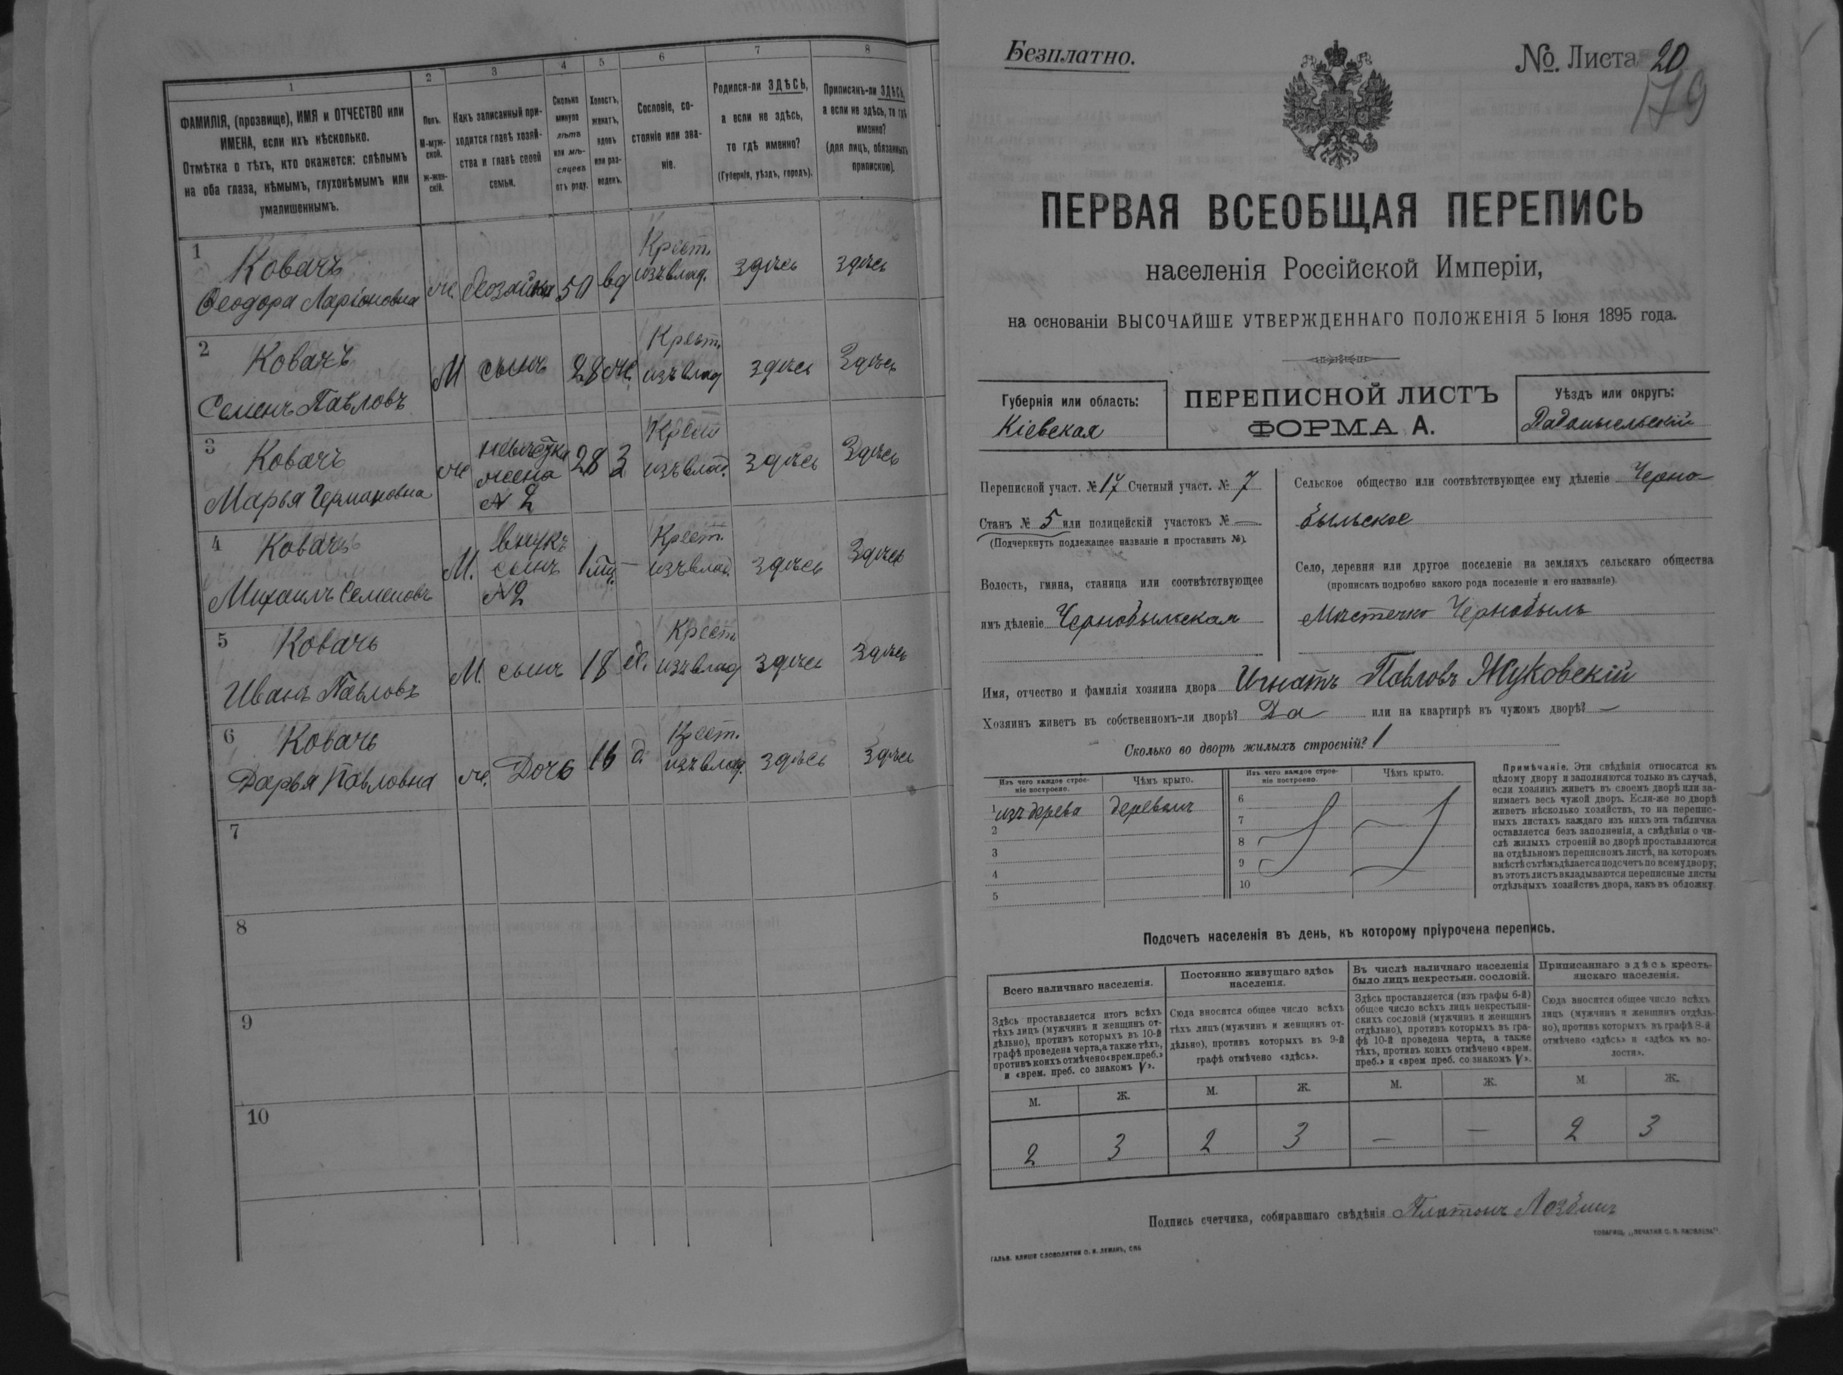 1
2
3
4
5
6
7
8
ФАМИЛІЯ, (прозвище), ИМЯ и ОТЧЕСТВО или
ИМЕНА, если ихъ нѣсколько.
Отмѣтка о тѣхъ, кто окажется: слѣпымъ
на оба глаза, нѣмымъ, глухонѣмымъ или
умалишеннымъ.
Полъ.
М-муж-
ской.
Ж-жен-
скій.
Какъ записанный при-
ходится главѣ хозяй-
ства и главѣ своей
семьи.
Сколько
минуло
лѣтъ
или мѣ-
сяцевъ
отъ роду.
Холостъ,
женатъ,
вдовъ
или раз-
веденъ.
Сословіе, со-
стояніе или зва-
ніе.
Родился-ли ЗДѢСЬ,
а если не здѣсь,
то гдѣ именно?
(Губернія, уѣздъ, городъ).
Приписанъ-ли ЗДѢСЬ,
а если не здѣсь, то гдѣ
именно?
(для лицъ, обязанныхъ
припискою).
1
Ковачъ
Ѳеодора Ларіоновна
ж. хозяйка 50 вд
Крест.
изъ влад.
здѣсь здѣсь
2
Ковачъ
Семенъ Павловъ
М сынъ 28 ж.
Крест.
изъ влад
здѣсь здѣсь
3
Ковачъ
Марья Германовна
ж
невѣстка
жена
№ 2
28 З
Крест
изъ влад.
здѣсь здѣсь
4
Ковачъ
Михаилъ Семеновъ
М.
внукъ
сынъ
№2
1 мц. —
Крест.
изъ влад.
здѣсь здѣсь
5
Ковачъ
Иванъ Павловъ
М. сынъ 18 х.
Крест
изъ влад
здѣсь здѣсь
6
Ковачъ
Дарья Павловна
ж. Дочь 16 д
Крест.
изъ влад.
здѣсь здѣсь
7
8
9
10
Безплатно.
№. Листа 20
179
ПЕРВАЯ ВСЕОБЩАЯ ПЕРЕПИСЬ
населенія Россійской Имперіи,
на основаніи ВЫСОЧАЙШЕ УТВЕРЖДЕННАГО ПОЛОЖЕНІЯ 5 Іюня 1895 года.
Губернія или область:
Кіевская
ПЕРЕПИСНОЙ ЛИСТЪ
ФОРМА А.
Уѣздъ или округъ:
Радомысльскій
Переписной участ. № 17 Счетный участ. № 7
Станъ № 5 или полицейскій участокъ № —
(Подчеркнуть подлежащее названіе и проставить №).
Волость, гмина, станица или соотвѣтствующее
имъ дѣленіе Чернобыльская
Сельское общество или соотвѣтствующее ему дѣленіе Черно-
быльское
Село, деревня или другое поселеніе на земляхъ сельскаго общества
(прописать подробно какого рода поселеніе и его названіе)
Мѣстечко Чернобыль
Имя, отчество и фамилія хозяина двора Игнатъ Павловъ Жуковскій
Хозяинъ живетъ въ собственномъ-ли дворѣ? Да или на квартирѣ въ чужомъ дворѣ? —
Сколько во дворѣ жилыхъ строеній? 1
Изъ чего каждое строе-
ніе построено.
Чѣмъ крыто.
Изъ чего каждое строе-
ніе построено.
Чѣмъ крыто.
1 изъ дерева деревомъ
2
3
4
5
6
7
8
9
10
Примѣчаніе. Эти свѣдѣнія относятся къ
цѣлому двору и заполняются только въ случаѣ,
если хозяинъ живетъ въ своемъ дворѣ или за-
нимаетъ весь чужой дворъ. Если-же во дворѣ
живетъ нѣсколько хозяйствъ, то на перепис-
ныхъ листахъ каждаго изъ нихъ эта табличка
оставляется безъ заполненія, а свѣдѣнія о чи-
слѣ жилыхъ строеній во дворѣ проставляются
на отдѣльномъ переписномъ листѣ, на которомъ
вмѣстѣ съ тѣмъ дѣлается подсчетъ по всему двору;
въ этотъ листъ вкладываются переписные листы
отдѣльныхъ хозяйствъ двора, какъ въ обложку.
Подсчетъ населенія въ день, къ которому пріурочена перепись.
Всего наличнаго населенія.
Здѣсь проставляется итогъ всѣхъ
тѣхъ лицъ (мужчинъ и женщинъ от-
дѣльно), противъ которыхъ въ 10-й
графѣ проведена черта, а также тѣхъ,
противъ коихъ отмѣчено «врем. преб.»
и «врем. преб. со знакомъ V».
Постоянно живущаго здѣсь
населенія.
Сюда вносится общее число всѣхъ
тѣхъ лицъ (мужчинъ и женщинъ от-
дѣльно), противъ которыхъ въ 9-й
графѣ отмѣчено «здѣсь».
Въ числѣ наличнаго населенія
было лицъ некрестьян. сословій.
Здѣсь проставляется (изъ графы 6-й)
общее число всѣхъ лицъ некрестьян-
скихъ сословій (мужчинъ и женщинъ
отдѣльно), противъ которыхъ въ гра-
фѣ 10-й проведена черта, а также
тѣхъ, противъ коихъ отмѣчено «врем.
преб.» и «врем преб. со знакомъ V».
Приписаннаго здѣсь кресть-
янскаго населенія.
Сюда вносится общее число всѣхъ
лицъ (мужчинъ и женщинъ отдѣль-
но), противъ которыхъ въ графѣ 8-й
отмѣчено «здѣсь» и «здѣсь въ во-
лости».
М. Ж. М. Ж. М. Ж. М. Ж.
2 3 2 3 — — 2 3
Подпись счетчика, собиравшаго свѣдѣнія Платонъ
ГАЛЬВ. КЛИШЕ СЛОВОЛИТНИ О. И. ЛЕМАНЪ, СПБ